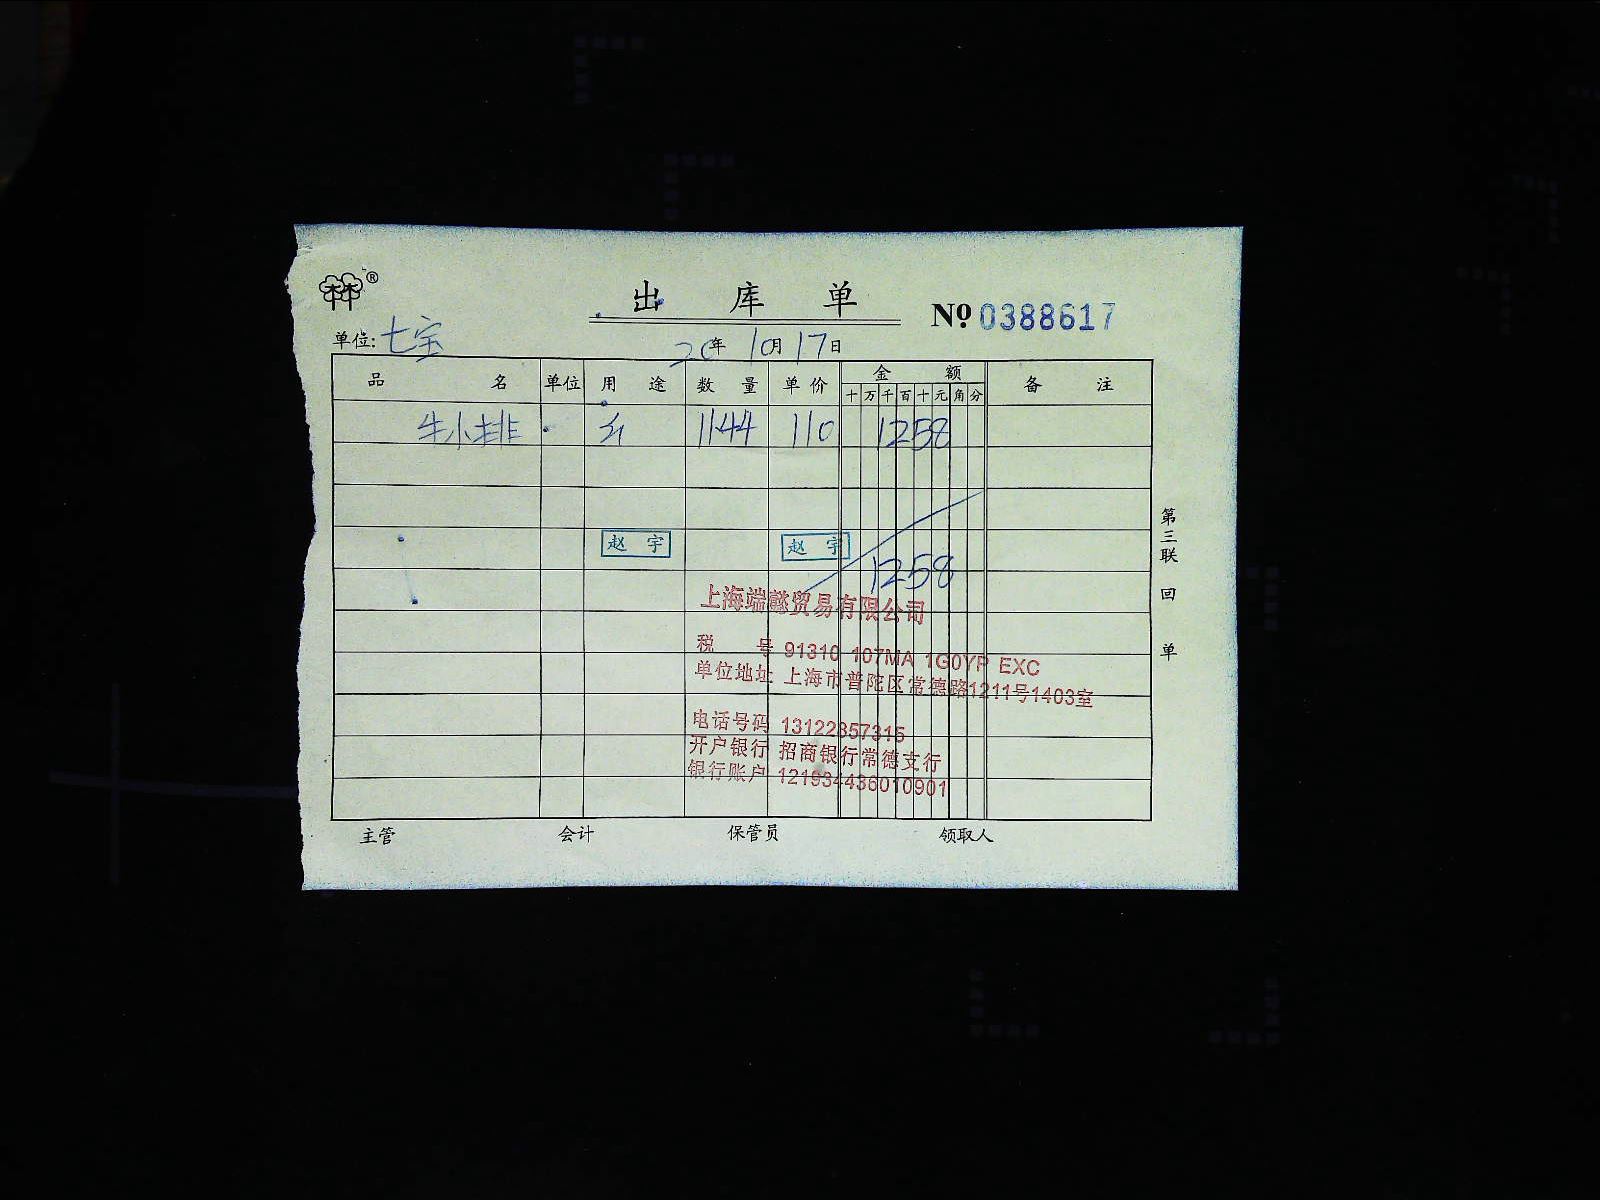 ®
出 库 单 №0388617
单位:七宝 20年10月17日
品 名 单位 用 途 数 量 单 价 金 额 备 注
十 万 千 百 十 元 角 分
牛小排 1144 110 1258
赵 宇 赵 宇
1258
上海端懿贸易有限公司
税 号 91310 107MA 1G0YP EXC
单位地址 上海市普陀区常德路1211号1403室
电话号码 13122357315
开户银行 招商银行常德支行
银行账户 121934436010901
主管 会计 保管员 领取人
第三联 回 单